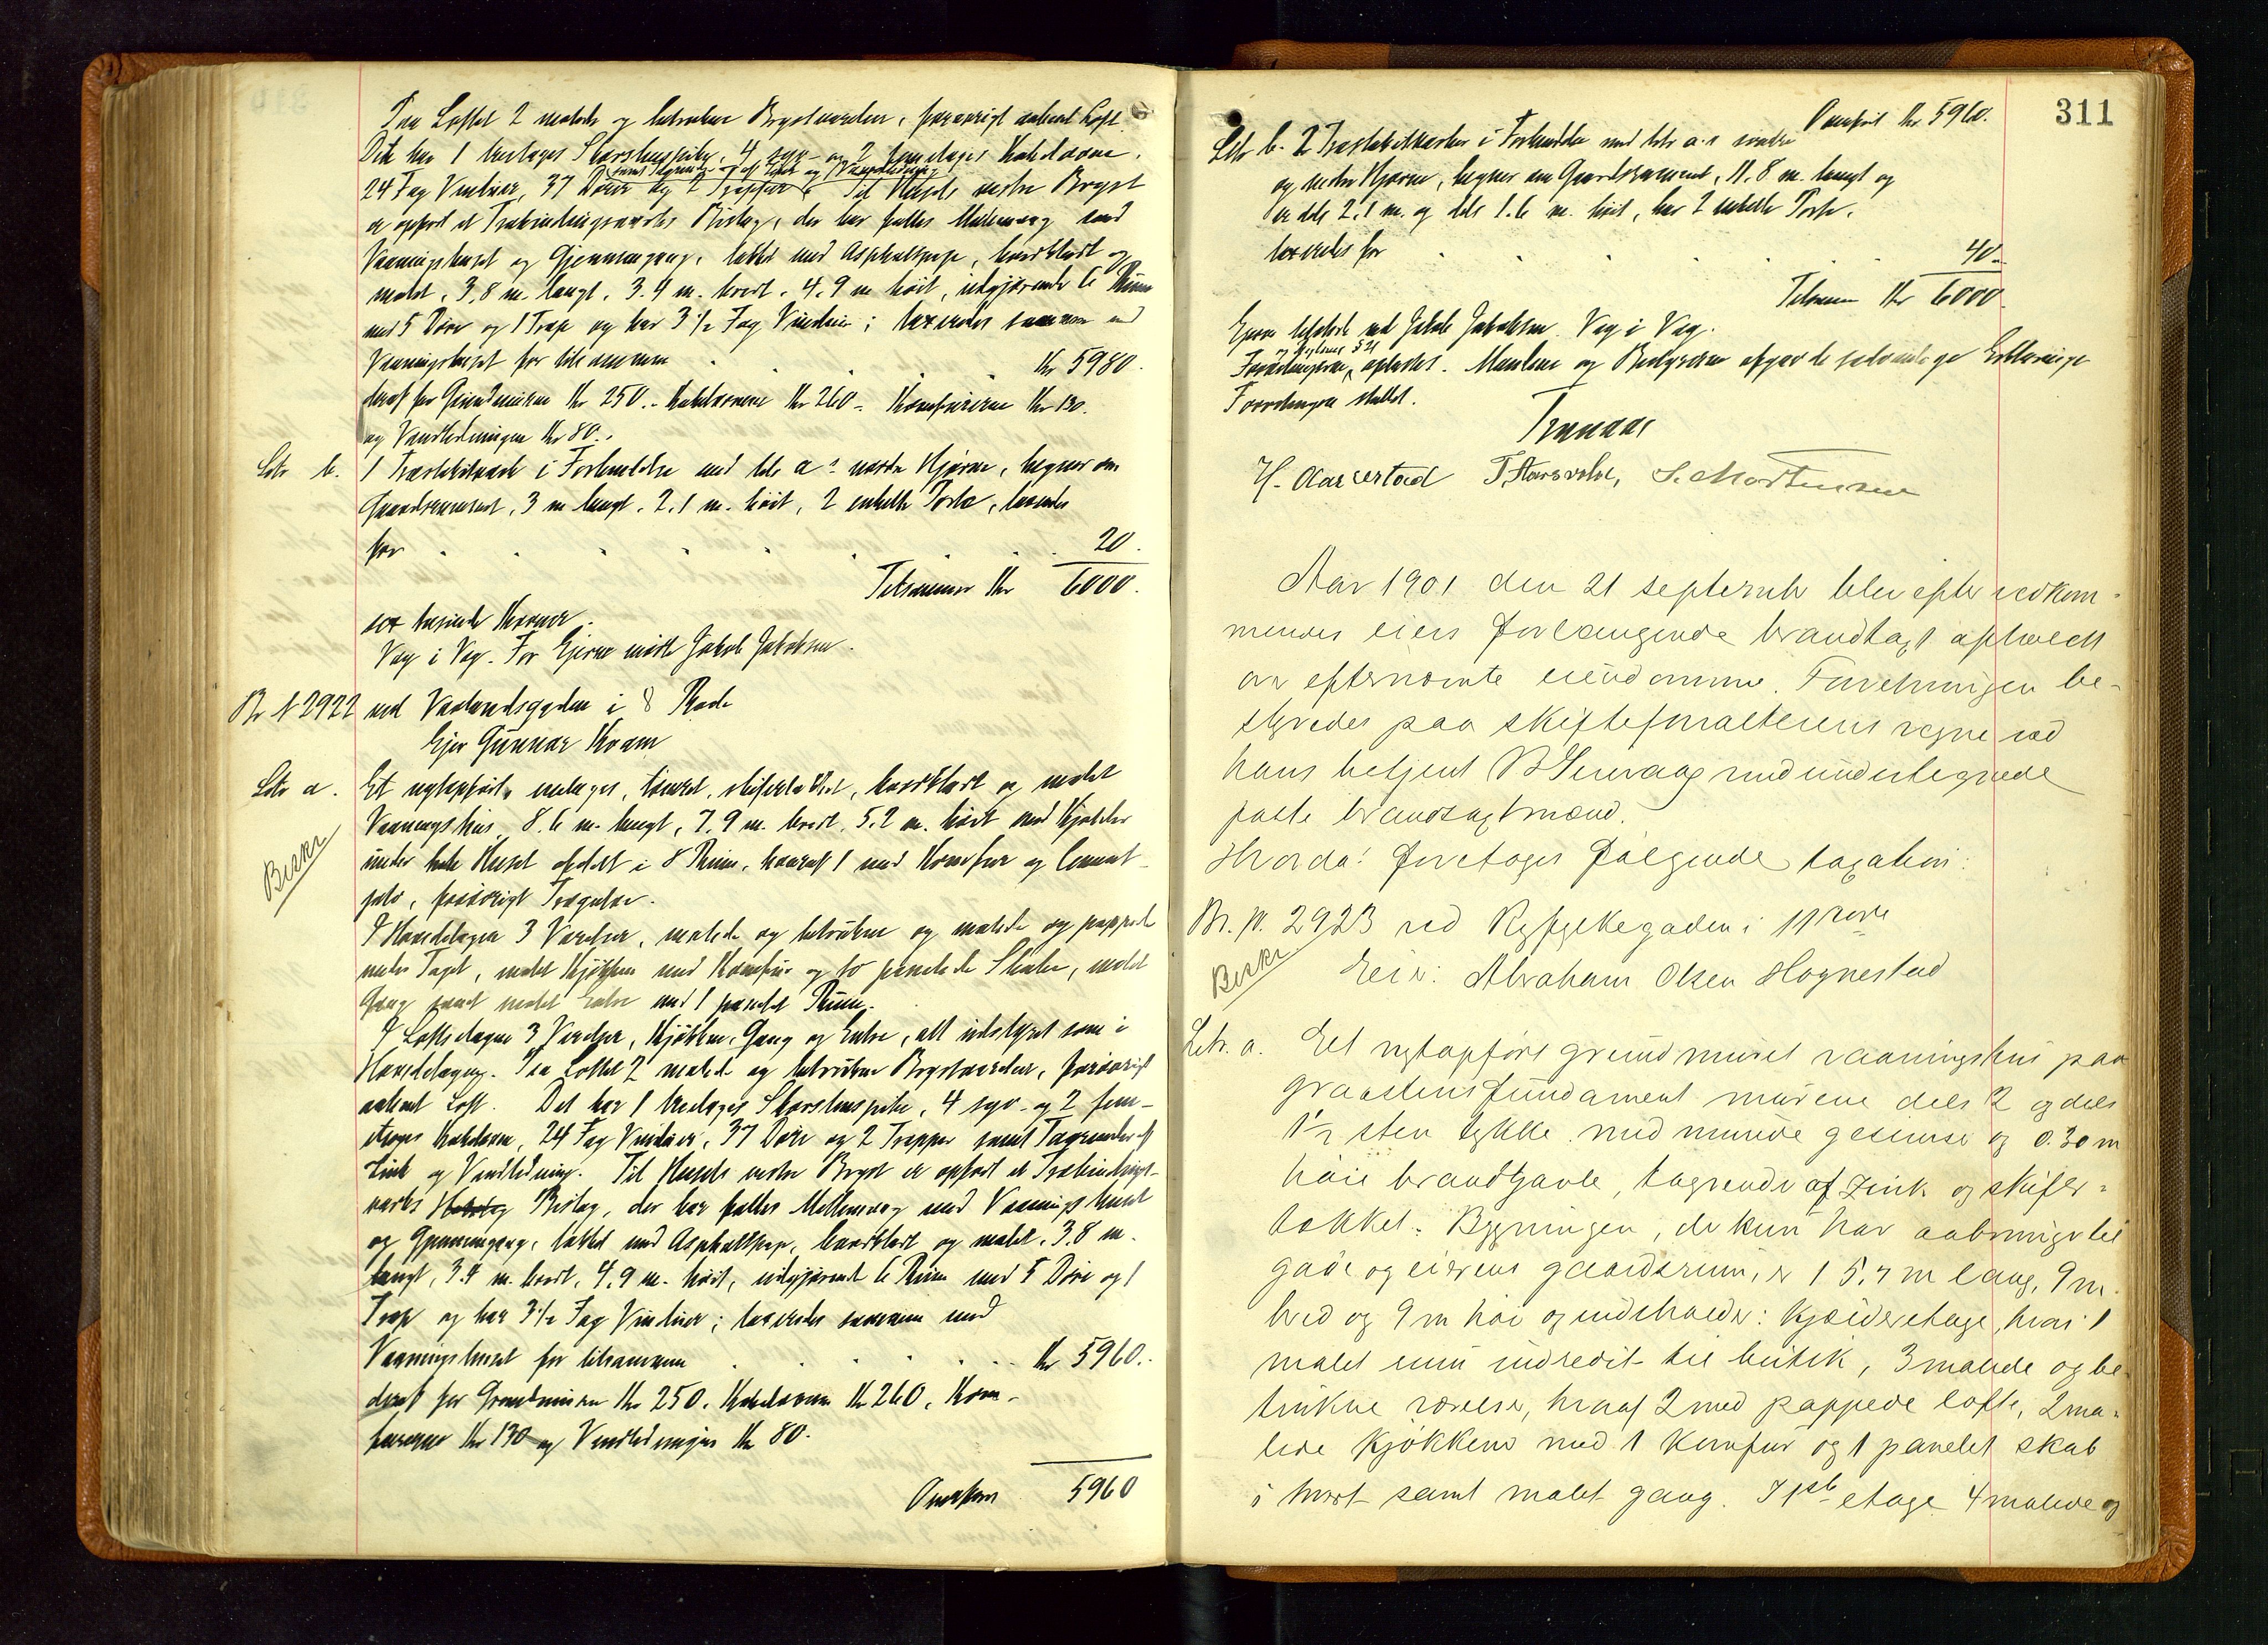 Paa Loftet 2 malede og betrukne Brystværelser, forøvrigt aabent Loft.
Det har 1 treetages Skorstenspibe, 4 syv- og 2 femetages Kakelovne,
samt Tagrender af Zink og Vandledning
24 Fag Vinduer, 37 Døre og 2 Trapper. Til Husets vestre Bryst
er opført et Træbindingsværks Bislag, der har fælles Mellemvæg med
Vaaningshuset og Gjennemgang, tækket med Asphaltpap, bordklædt og
malet, 3,8 m. langt, 3.4 m. bredt, 4.9 m høit, udgjørende 6 Rum
med 5 Døre og 1 Trap og har 3 1/2 Fag Vinduer; taxeredes sammen med
Vaaningshuset for tilsammen Kr 5980.
deraf for Grundmuren Kr 250.- Kakelovnene Kr 260.- Komfurerne Kr 130.
og Vandledningen Kr 80.
Litr b. 1 Træstakitværk i Forbindelse med litr a's nordre Hjørne, hegner om
Gaardsrummet, 3 m langt, 2.1 m. høit, 2 enkelte Porte, taxeredes
for 20.
Tilsammen Kr 6000.
sex tusinde Kroner.
Væg i Væg. For Ejeren mødte Jakob Jakobsen.
Br N 2922 ved Vaalandsgaden i 8 Rode
Ejer Gunnar Kvam
Litr a. Et nyopført, enetages, tømret, skifertækket, bordklædt og malet
Vaaningshus 8.6 m. langt, 7.9 m. bredt, 5.2 m. høit med Kjelder
Beskr
under hele Huset afdelt i 8 Rum, hvoraf 1 med Komfur og Cement-
gulv, forøvrigt Trægulve.
I Hovedetagen 3 Værelser, malede og betrukne og malede og pappede
under Taget, malet Kjøkken med Komfur og to panelede Skabe, malet
Gang samt malet Entre med 1 panelet Rum.
I Loftsetagen 3 Værelser, Kjøkken, Gang og Entre, alt udstyret som i
Hovedetagen. Paa Loftet 2 malede og betrukne Brystværelser, forøvrigt
aabent Loft. Det har 1 treetages Skorstenspibe, 4 syv- og 2 fem-
etages Kakelovne, 24 Fag Vinduer, 37 Døre og 2 Trapper samt Tagrender af
Zink og Vandledning. Til Husets vestre Bryst er opført et Træbindings-
værks Bislag, der har fælles Mellemvæg med Vaaningshuset
og Gjennemgang, tækket med Asphaltpap, bordklædt og malet, 3.8 m.
langt, 3.4 m. bredt, 4.9 m. høit, udgjørende 6 Rum med 5 Døre og 1
Trap og har 3 1/2 Fag Vinduer; taxeredes sammen med
Vaaningshuset for tilsammen Kr 5960.
deraf for Grundmuren Kr 250. Kakelovnene Kr 260. Kom-
furerne Kr 130 og Vandledningen Kr 80.
Overføres 5960
311
Overført Kr 5960.
Litr b. 2 Træstakitværker i Forbindelse med litr a's søndre
og vestre Hjørne, hegner om Gaardsrummet, 11.8 m. langt og
er dels 2.1 m. og dels 1.6 m. høit, har 2 enkelte Porte,
taxeredes for 40.-
Tilsammen Kr 6000
Ejeren tilstede ved Jakob Jakobsen. Væg i Væg.
og Lovens § 21
Forretningerne oplæstes. Mændene og Bestyreren afgav de sædvanlige Erklæringer
Forretningen sluttet.
Tranaas
H. Aarrestad T. Aarsvoln, S. Mortensen
Aar 1901 den 21 septembr blev efter vedkom-
mendes eiers forlangende brandtaxt afholdt
over efternævnte eiendomme. Forretningen be-
styredes paa skifteforvalterens vegne ved
hans betjent B Simvaag med undertegnede
faste brandtaxtmænd.
Hvorda! foretoges følgende taxation:
Br. N. 2923 ved Ryfylkegaden i 11 rode
Beskr
Eier: Abraham Olsen Hognestad
Litr. a. Et nyopført grundmuret vaaningshus paa
graastensfundament murene dels 2 og dels
1 1/2 sten tykke med murede gesimse og 0.30 m
høie brandgavle, tagrende af zink og skifer-
tækket. Bygningen, der kun har aabninger til
gade og eierens gaardsrum, er 15,7 m lang, 9 m.
bred og 9 m høi og indeholder: Kjælderetage, hvori 1
malet rum indredet til butik, 3 malede og be-
trukne værelser, hvoraf 2 med pappede lofte, 2 ma-
lede kjøkkener med 1 komfur og 1 panelet skab
i hvert samt malet gang. I 1ste etage 4 malede og